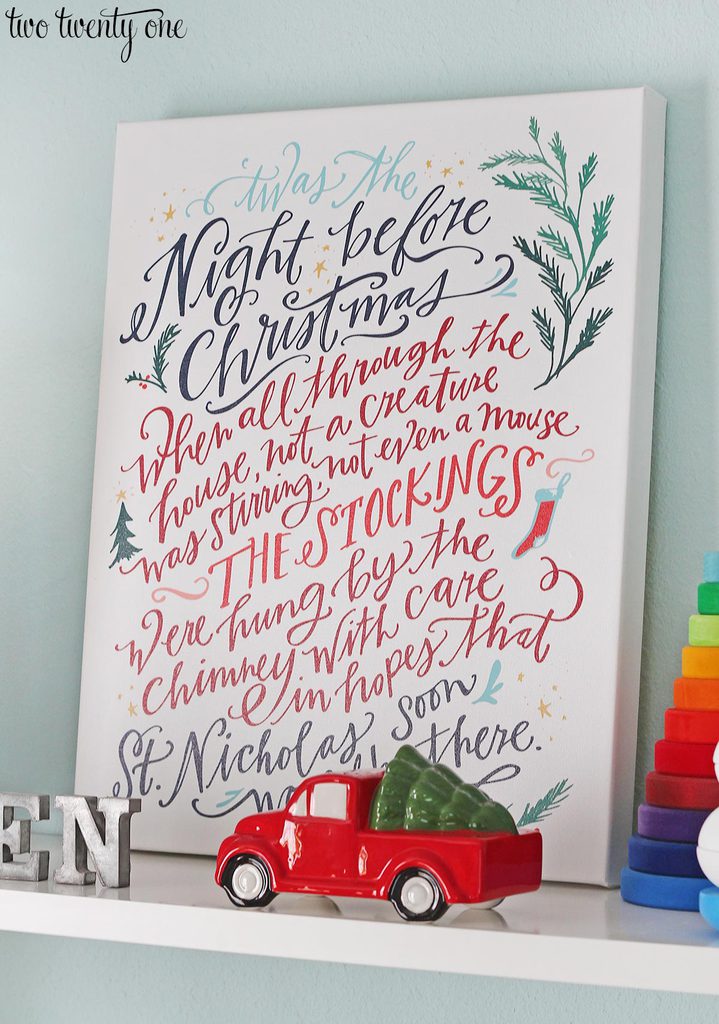 two twenty one
'twas the
Night before
Christmas
When all through the
house, not a creature
was stirring, not even a mouse
THE STOCKINGS
were hung by the
chimney with care
in hopes that
St. Nicholas soon
there.
EN